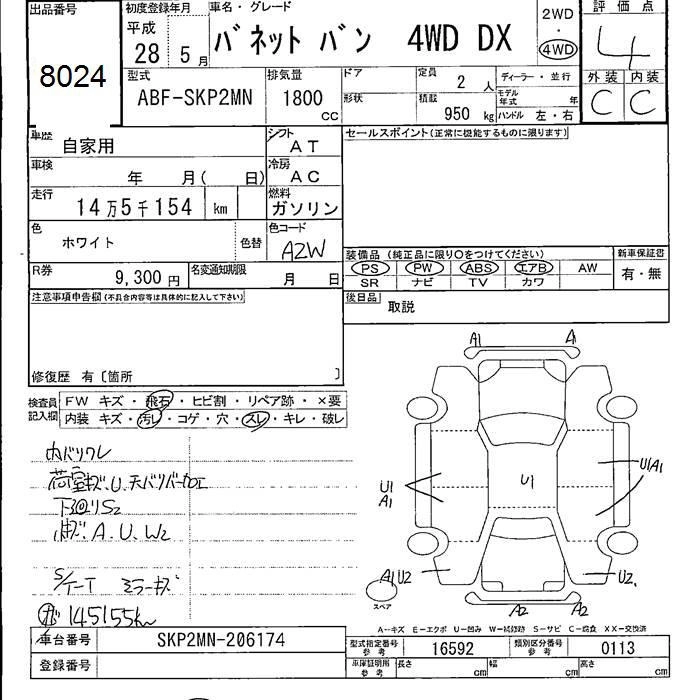 出品番号
8024
初度登録年月
平成
28 5月
車名・グレード
バネット バン 4WD DX
2WD
・
4WD
評価点
4
外装 内装
C C
型式
ABF-SKP2MN
排気量
1800
CC
ドア
形状
定員
2 人
積載
950 kg
ディーラー・並行
モデル年式 年
ハンドル 左・右
車歴
自家用
シフト
AT
セールスポイント(正常に機能するものに限ります)
車検
年 月( 日)
冷房
AC
走行
14万5千154 km
燃料
ガソリン
色
ホワイト
色替
色コード
AZW
装備品(純正品に限り○をつけてください)
PS PW ABS エアB AW
SR ナビ TV カワ
新車保証書
有・無
R券
9,300 円
名変通知期限
月 日
注意事項申告欄(不具合内容等は具体的に記入して下さい)
後日品
取説
修復歴 有〔箇所 〕
検査員
記入欄
FW キズ・飛石・ヒビ割・リペア跡・×要
内装 キズ・汚レ・コゲ・穴・スレ・キレ・破レ
内バリワレ
荷室キズ.U.天バリバーカエ
下回リS2
A.U.W2
S/T-T ミラーキズ
145155km
A1 A1
U1
A1
U1
U1A1
A1U2
U2
A2 A2
スペア
A--キズ E--エクボ U--凹み W--補修跡 S--サビ C--腐食 XX--交換済
車台番号
SKP2MN-206174
登録番号
型式指定番号
参考
16592
類別区分番号
参考
0113
車庫証明用
参考
長さ cm 幅 cm 高さ cm